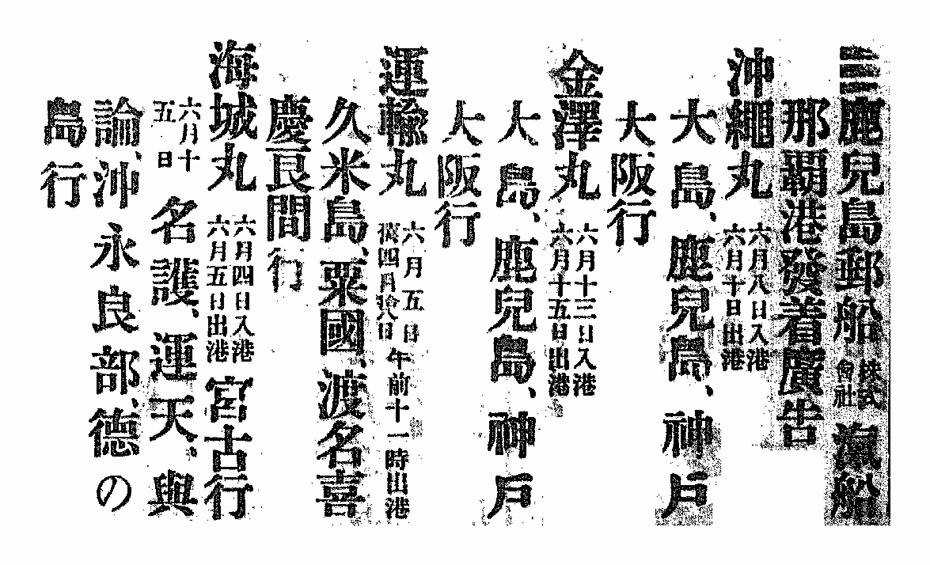 三鹿兒島郵船株式會社汽船
那覇港發着廣告
沖繩丸 六月八日入港 六月十日出港
大島、鹿兒島、神戸
大阪行
金澤丸 六月十三日入港 六月十五日出港
大島、鹿兒島、神戸
大阪行
運輸丸 六月五日 舊四月拾八日 午前十一時出港
久米島、粟國、渡名喜
慶良間行
海城丸 六月四日入港 六月五日出港 宮古行
六月十五日 名護、運天、與
論、沖永良部、德の
島行